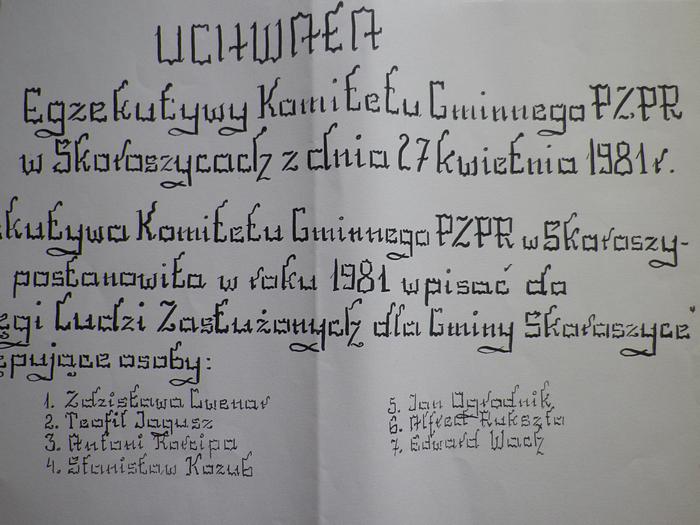 UCHWAŁA
Egzekutywy Komitetu Gminnego PZPR
w Skoroszycach z dnia 27 kwietnia 1981 r.
kutywa Komitetu Gminnego PZPR w Skoroszy-
postanowiła w roku 1981 wpisać do
ęgi Ludzi Zasłużonych dla Gminy Skoroszyce"
ępujące osoby:
1. Zdzisława Cwenar
2. Teofil Jagusz
3. Antoni Karcipa
4. Stanisław Kozub
5. Jan Ogrodnik
6. Alfred Rukszta
7. Edward Wach